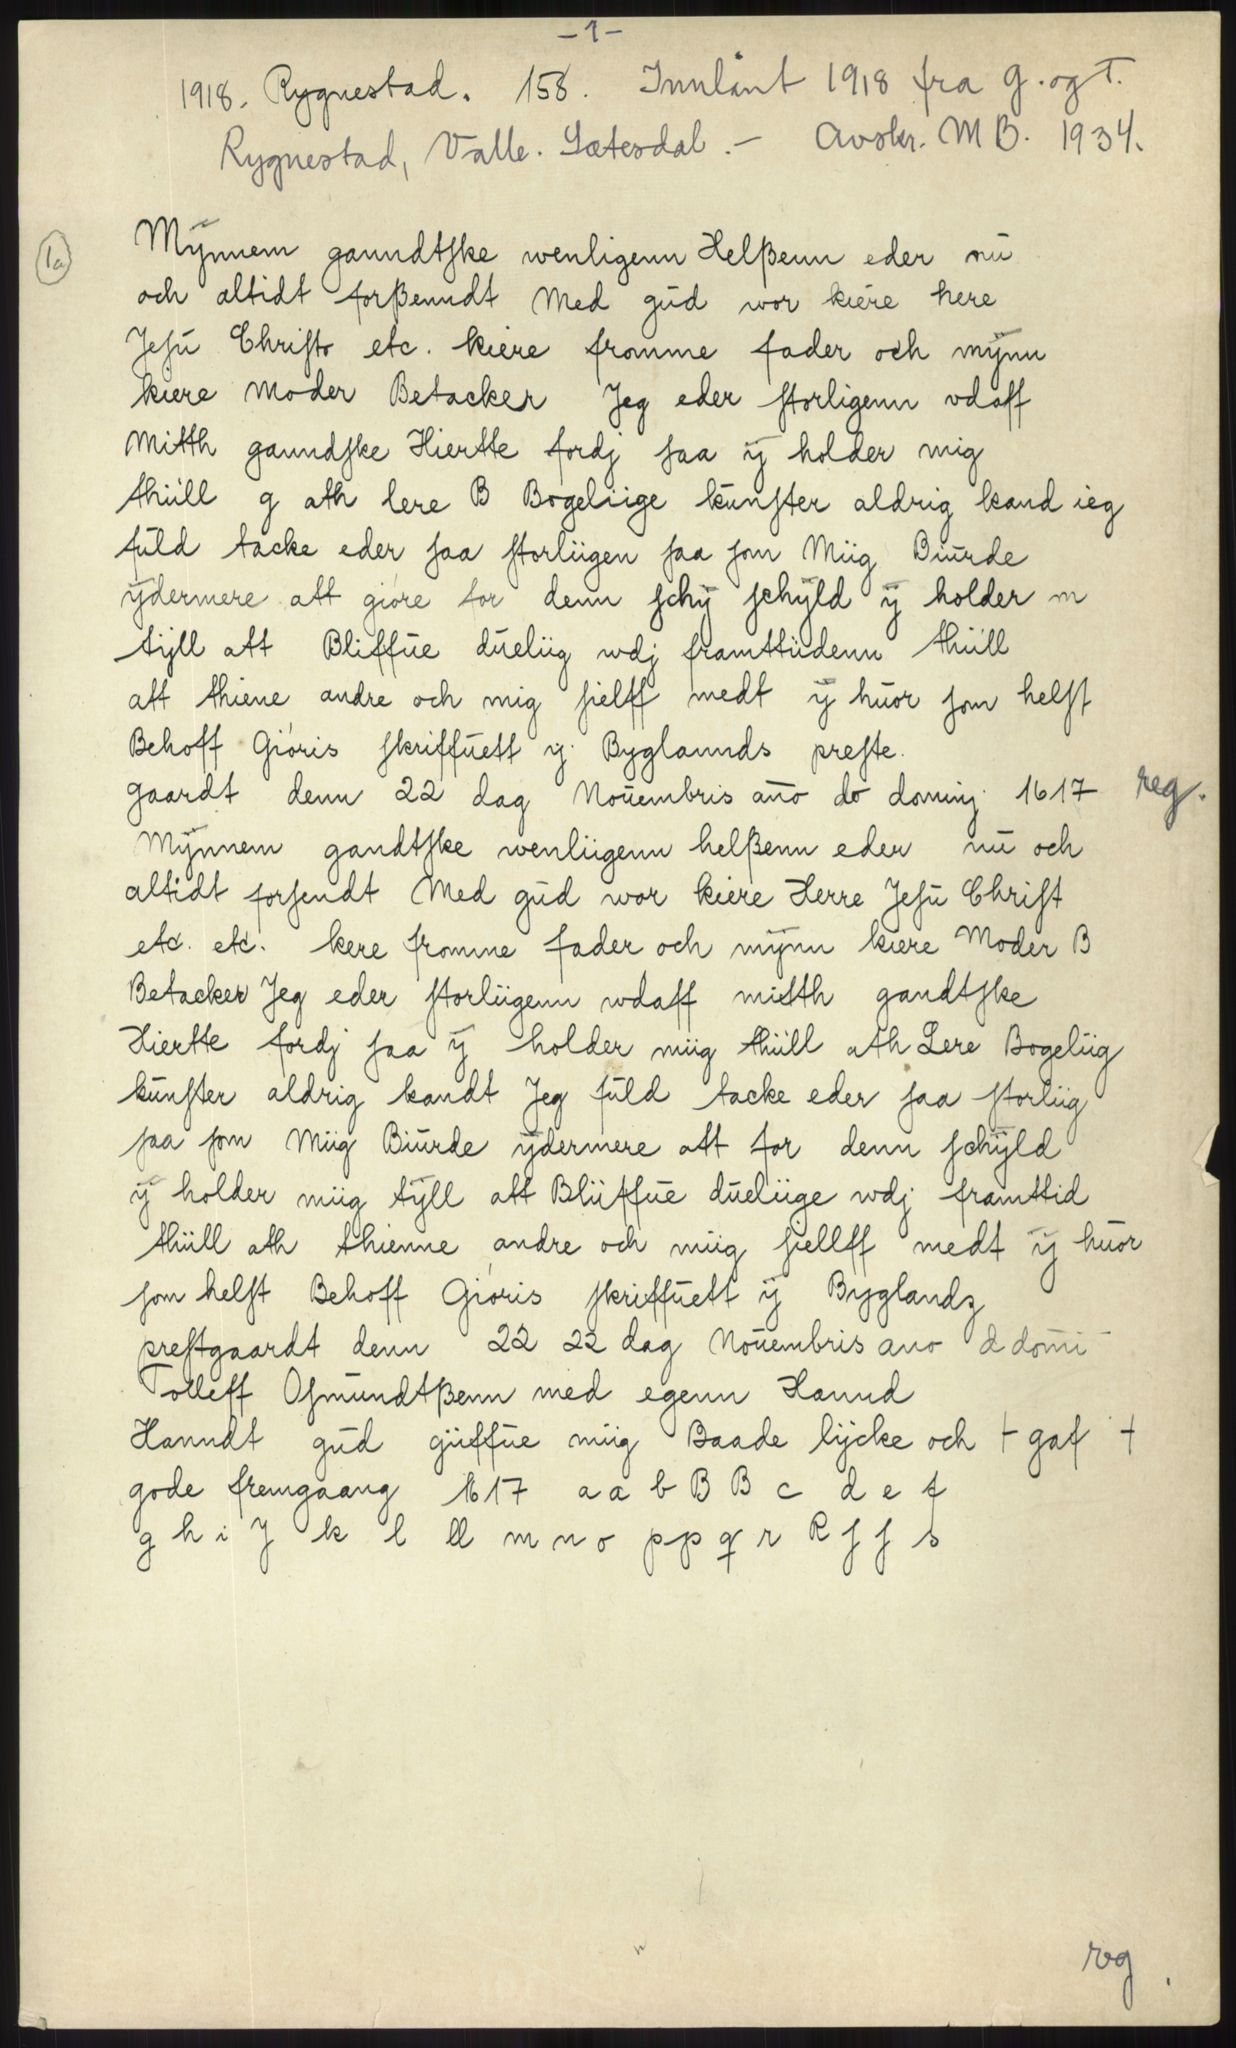 - 1 -
1918. Rygnestad. 158. Innlånt 1918 fra G. og T.
Rygnestad, Valle. Sætesdal. - Avskr. M B. 1934.
1a
Mÿnnem ganndtſke wenligenn Helßenn eder nū
och altidt forßenndt Med gūd wor kiere here
Jeſū Chriſto etc. kiere fromme fader och mÿnn
kiere Moder Betacker Jeg eder ſtorligenn vdaff
Mitth ganndſke Hiertte fordj ſaa ÿ holder mig
thiill g ath lere B Bogeliige kūnſter aldrig kand ieg
fūld tacke eder ſaa ſtorliigen ſaa ſom Miig Biūrde
ÿdermere att gióre for denn ſchÿ ſchÿld ÿ holder m
tÿll att Bliffūe dūeliig wdj framttiidenn thiill
att thiene andre och mig ſielff medt ÿ hūor ſom helſt
Behoff Gióris ſkriffūett ÿ Byglannds preſte.
gaardt denn 22 dag Noūembris ano do dominj 1617 reg.
Mÿnnem gandtſke wenliigenn helßenn eder nū och
altidt forſendt Med gūd wor kiere Herre Jeſū Chriſt
etc. etc. kere fromme fader och mÿnn kiere Moder B
Betacker Jeg eder ſtorliigenn wdaff mitth gandtſke
Hiertte fordj ſaa ÿ holder miig thiill ath Lere Bogeliig
kūnſter aldrig kandt Jeg fūld tacke eder ſaa ſtorliig
ſaa ſom Miig Biūrde ÿdermere att for denn ſchÿld
ÿ holder miig tÿll att Bliiffūe dūeliige wdj framttid
thiill ath thienne andre och miig ſiellff medt ÿ hūor
ſom helſt Behoff Gióris ſkriffūett ÿ Bÿglandz
preſtgaardt denn 22 22 dag Noūembris ano d domi
Tolleff Oſmūndtßenn med egenn Hannd
Hanndt gūd giiffūe miig Baade lÿcke och + gaf +
gode fremgaang 1617 a a b B B c d e f
g h i J k l ll m n o p p q r R ſ ſ s
reg.